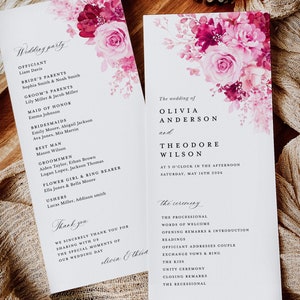 Wedding party
OFFICIANT
Liam Davis
BRIDE'S PARENTS
Samuel Adams, Kathy Adams
GROOM'S PARENTS
Lily Miller & Jacob Miller
MAID OF HONOR
Emma Johnson
BRIDESMAIDS
Emily Moore, Abigail Jackson
Ava Jones, Mia Martin
BEST MAN
Ethan Wilson
GROOMSMEN
Aiden Taylor, Ethan Brown
Logan Lopez, Jackson Taylor
FLOWER GIRL & RING BEARER
Ella Jones & Noah Moore
USHERS
Lucas Williams, Addison smith
Thank you,
WE SINCERELY THANK YOU FOR
SHARING WITH US
THE SPECIAL MOMENTS OF
OUR WEDDING DAY.
olivia & theodore
The wedding of
OLIVIA
ANDERSON
and
THEODORE
WILSON
AT 2 O'CLOCK IN THE AFTERNOON
SATURDAY, MAY 16TH 2026
The ceremony
THE PROCESSIONAL
WORDS OF WELCOME
OPENING REMARKS & INTRODUCTION
READINGS
OFFICIANT ADDRESSES COUPLE
EXCHANGE VOWS & RING
THE KISS
UNITY CEREMONY
CLOSING REMARKS
RECESSIONAL